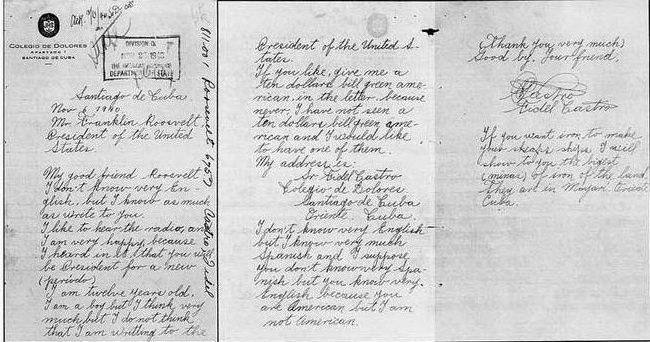 COLEGIO DE DOLORES
APARTADO 1
SANTIAGO DE CUBA
DIVISION OF
THE AMERICAN REPUBLICS
DEPARTMENT OF STATE
Santiago de Cuba.
Nov 6 1940.
Mr. Franklin Roosvelt,
President of the United
States.
My good friend Roosvelt
I don't know very En-
glish, but I know as much
as write to you.
I like to hear the radio, and
I am very happy, because
I heard in it, that you will
be President for a new
(periodo)
I am twelve years old.
I am a boy but I think very
much but I do not think
that I am writting to the
Roosevelt
Castro, Fidel
President of the United S-
tates.
If you like, give me a
ten dollars bill green ame-
rican, in the letter, because
never, I have not seen a
ten dollars bill green ame-
rican and I would like
to have one of them.
My address is:
Sr. Fidel Castro
Colegio de Dolores
Santiago de Cuba
Oriente. Cuba.
I don't know very English
but I know very much
Spanish and I suppose
you don't know very Spa-
nish but you know very
English because you
are American but I am
not American.
(Thank you very much)
Good by. Your friend,
Castro
Fidel Castro
If you want iron to make
your sheaps ships I will
show to you the bigest
(minas) of iron of the land.
They are in Mayari. Oriente
Cuba.